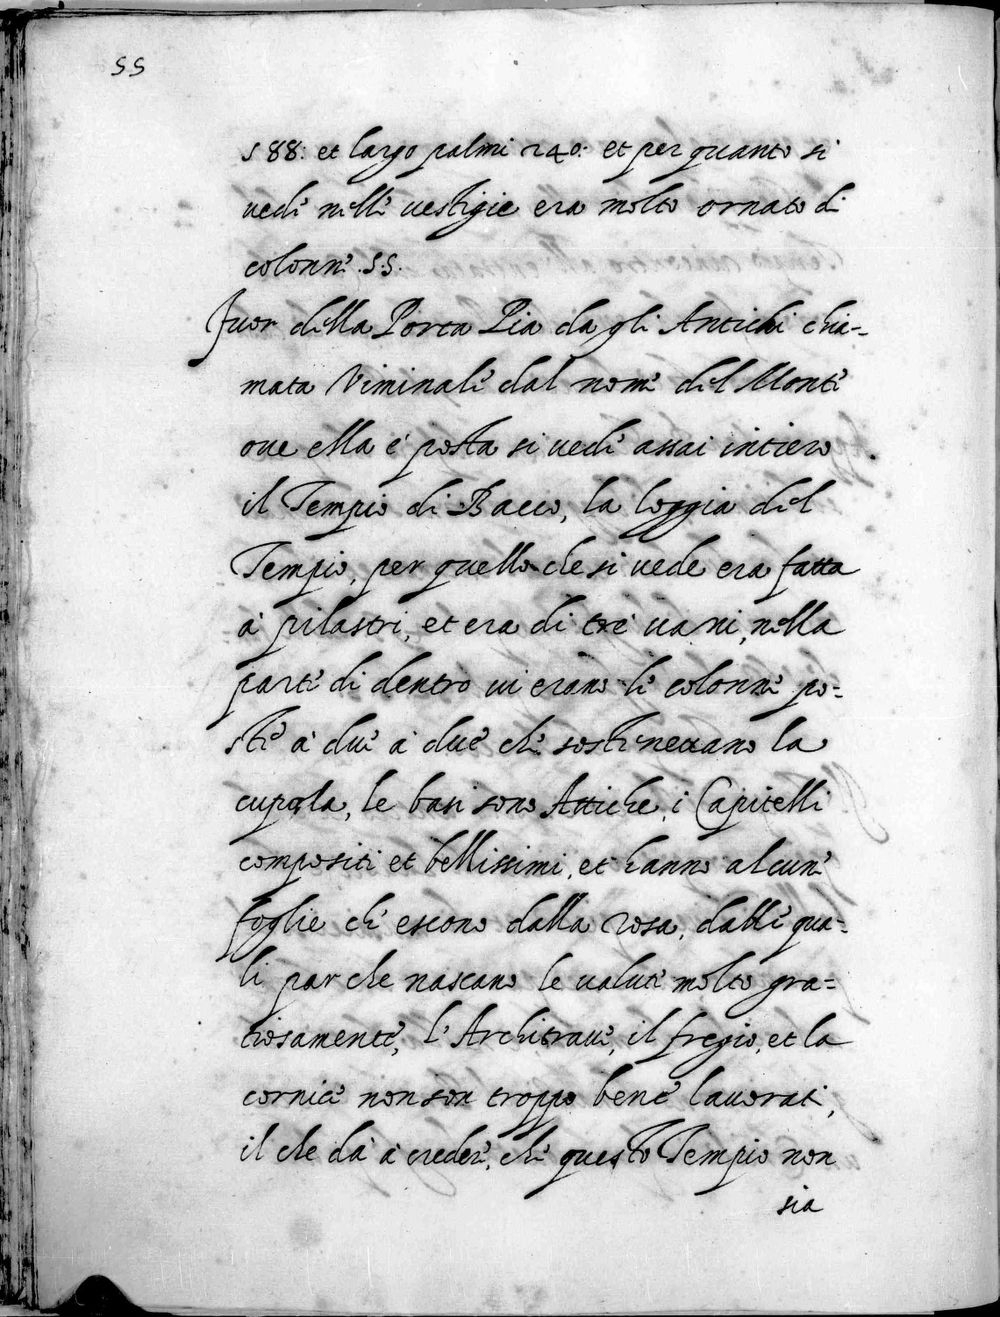 55
588: et largo palmi 240: et per quanto si
uede nelle uestigie era molto ornato di
colonne .55.
fuor della Porta Pia da gli Antichi chia-
mata Viminale dal nome del Monte
oue ella é posta si uede assai intiero
il Tempio di Bacco, la loggia del
Tempio, per quello che si uede era fatta
à pilastri, et era di tré uani, nella
parte di dentro ui erano le colonne po=
ste à due à due che sosteneuano la
cupola, le basi sono Attiche, i Capitelli
compositi et bellissimi, et hanno alcune
foglie che escono dalla rosa, dalle qua-
li par che nascano le uolute molto gra=
tiosamente, l'Architraue, il fregio, et la
cornice non son troppo bene lauorati,
il che dà à credere, che questo Tempio non
sia